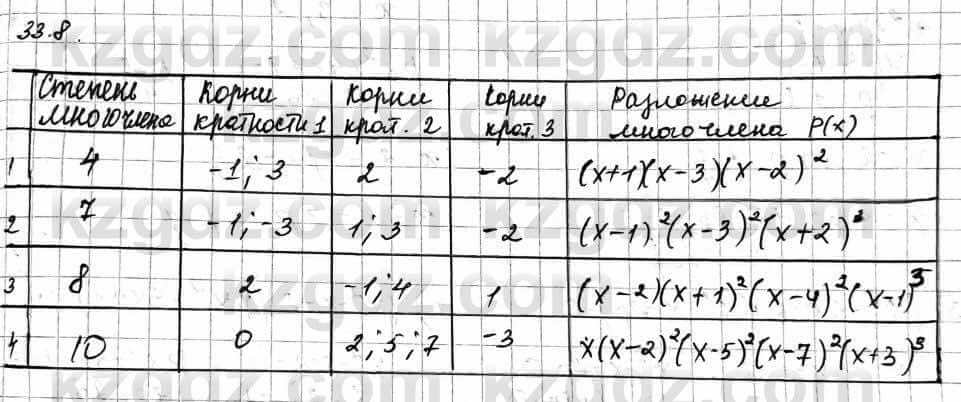 33.8.
Степень многочлена | Корни кратности 1 | Корни крат. 2 | Корни крат. 3 | Разложение многочлена P(x)
1 | 4 | -1; 3 | 2 | -2 | (x+1)(x-3)(x-2)²
2 | 7 | -1; -3 | 1; 3 | -2 | (x-1)²(x-3)²(x+2)³
3 | 8 | 2 | -1; 4 | 1 | (x-2)(x+1)²(x-4)²(x-1)³
4 | 10 | 0 | 2; 5; 7 | -3 | x(x-2)²(x-5)²(x-7)²(x+3)³
kzgdz.com kzgdz.com
kzgdz.com kzgdz.com
kzgdz.com kzgdz.com
kzgdz.com kzgdz.com